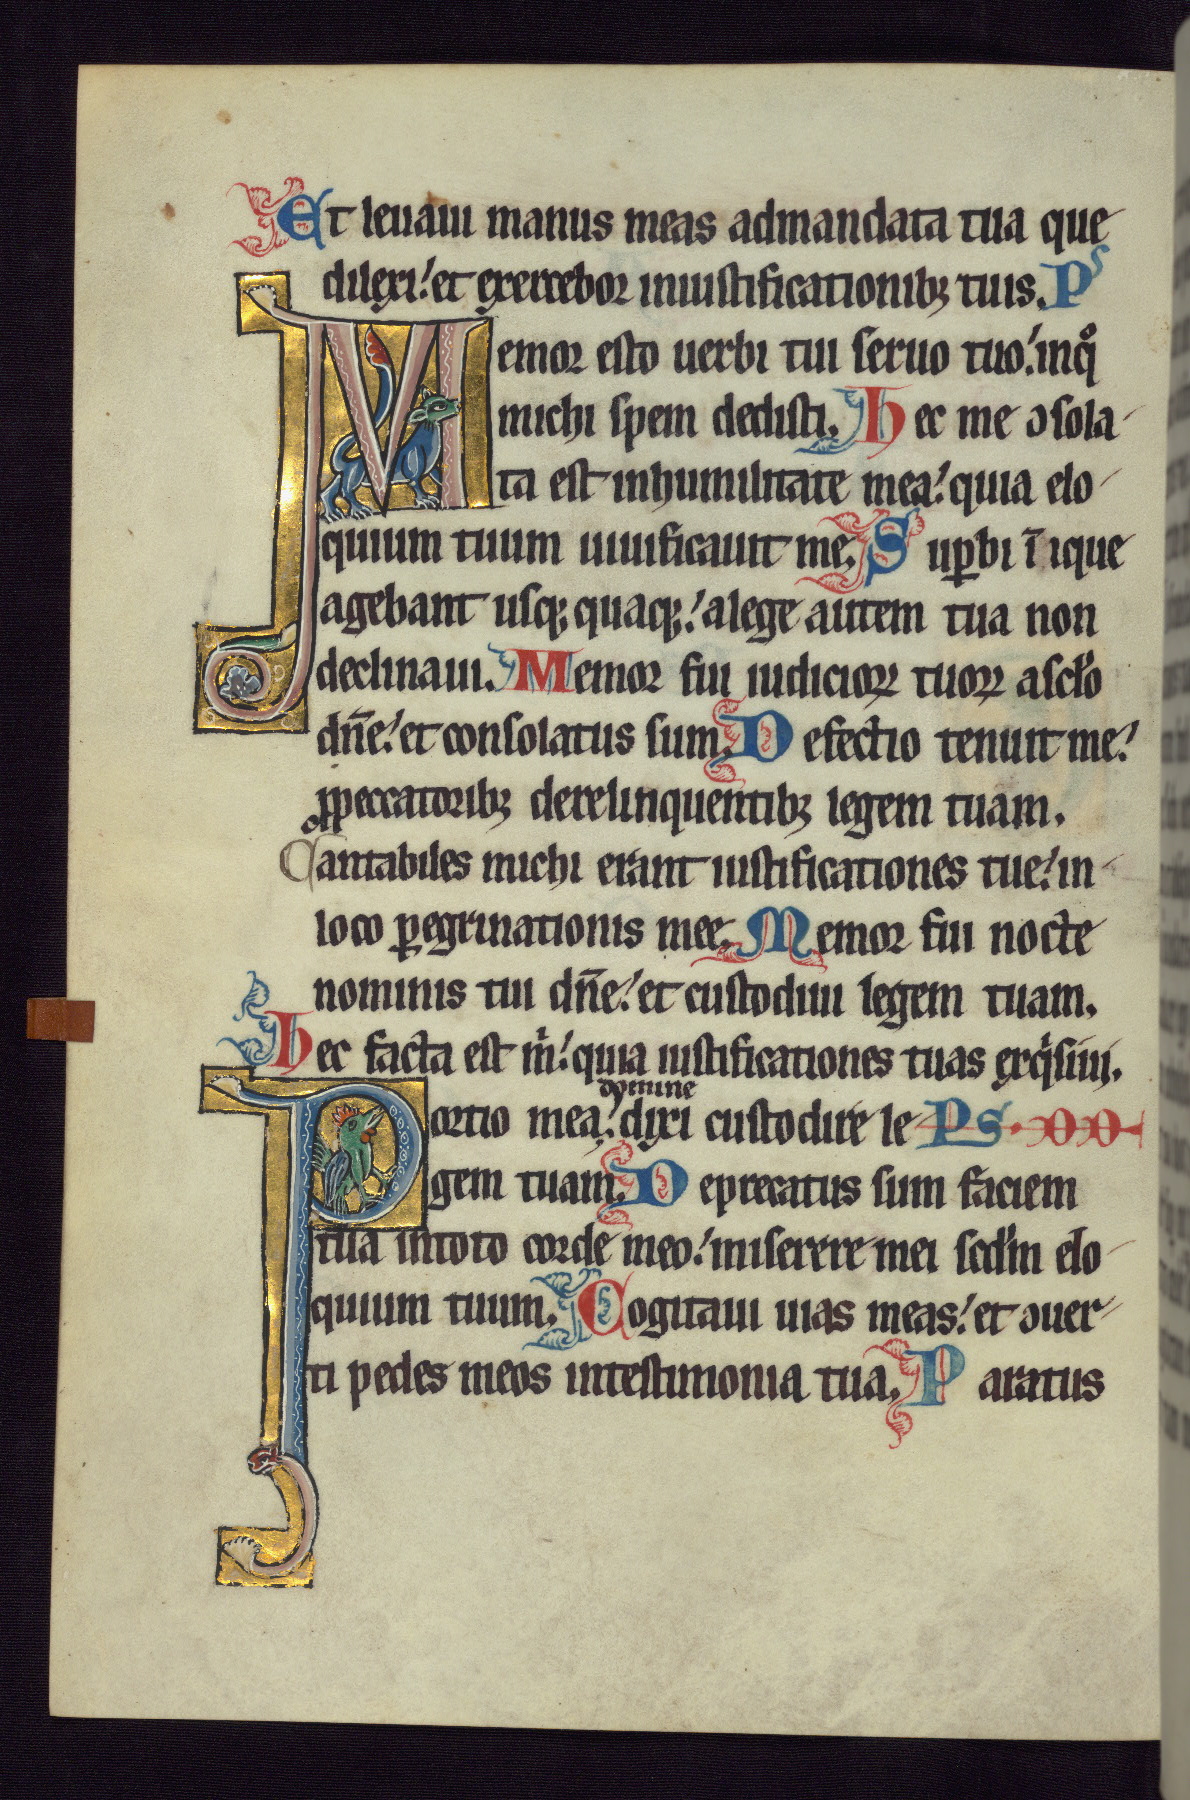 Et leuaui manus meas admandata tua que
dilexi! et exercebor iniustificationibꝫ tuis. Ps
Memor esto uerbi tui seruo tuo! inqͦ
michi spem dedisti. Hec me ↄsola-
ta est inhumilitate mea! quia elo-
quium tuum uiuificauit me. Suꝑbi īique
agebant usqꝫ quaqꝫ! alege autem tua non
declinaui. Memor fui iudicioꝝ tuoꝝ asclo
dn̄e! et consolatus sum. Defectio tenuit me!
ꝓpeccatoribꝫ derelinquentibꝫ legem tuam.
Cantabiles michi erant iustificationes tue! in-
loco ꝑegrinationis mee. Memor fui nocte
nominis tui dn̄e! et custodiui legem tuam.
Hec facta est m̍! quia iustificationes tuas exq̍siui.
domine
Portio mea! dixi custodire le Ps.
gem tuam. Deprecatus sum faciem
tua intoto corde meo! miserere mei scdm elo-
quium tuum. Cogitaui uias meas! et ↄuer-
ti pedes meos intestimonia tua. Paratus